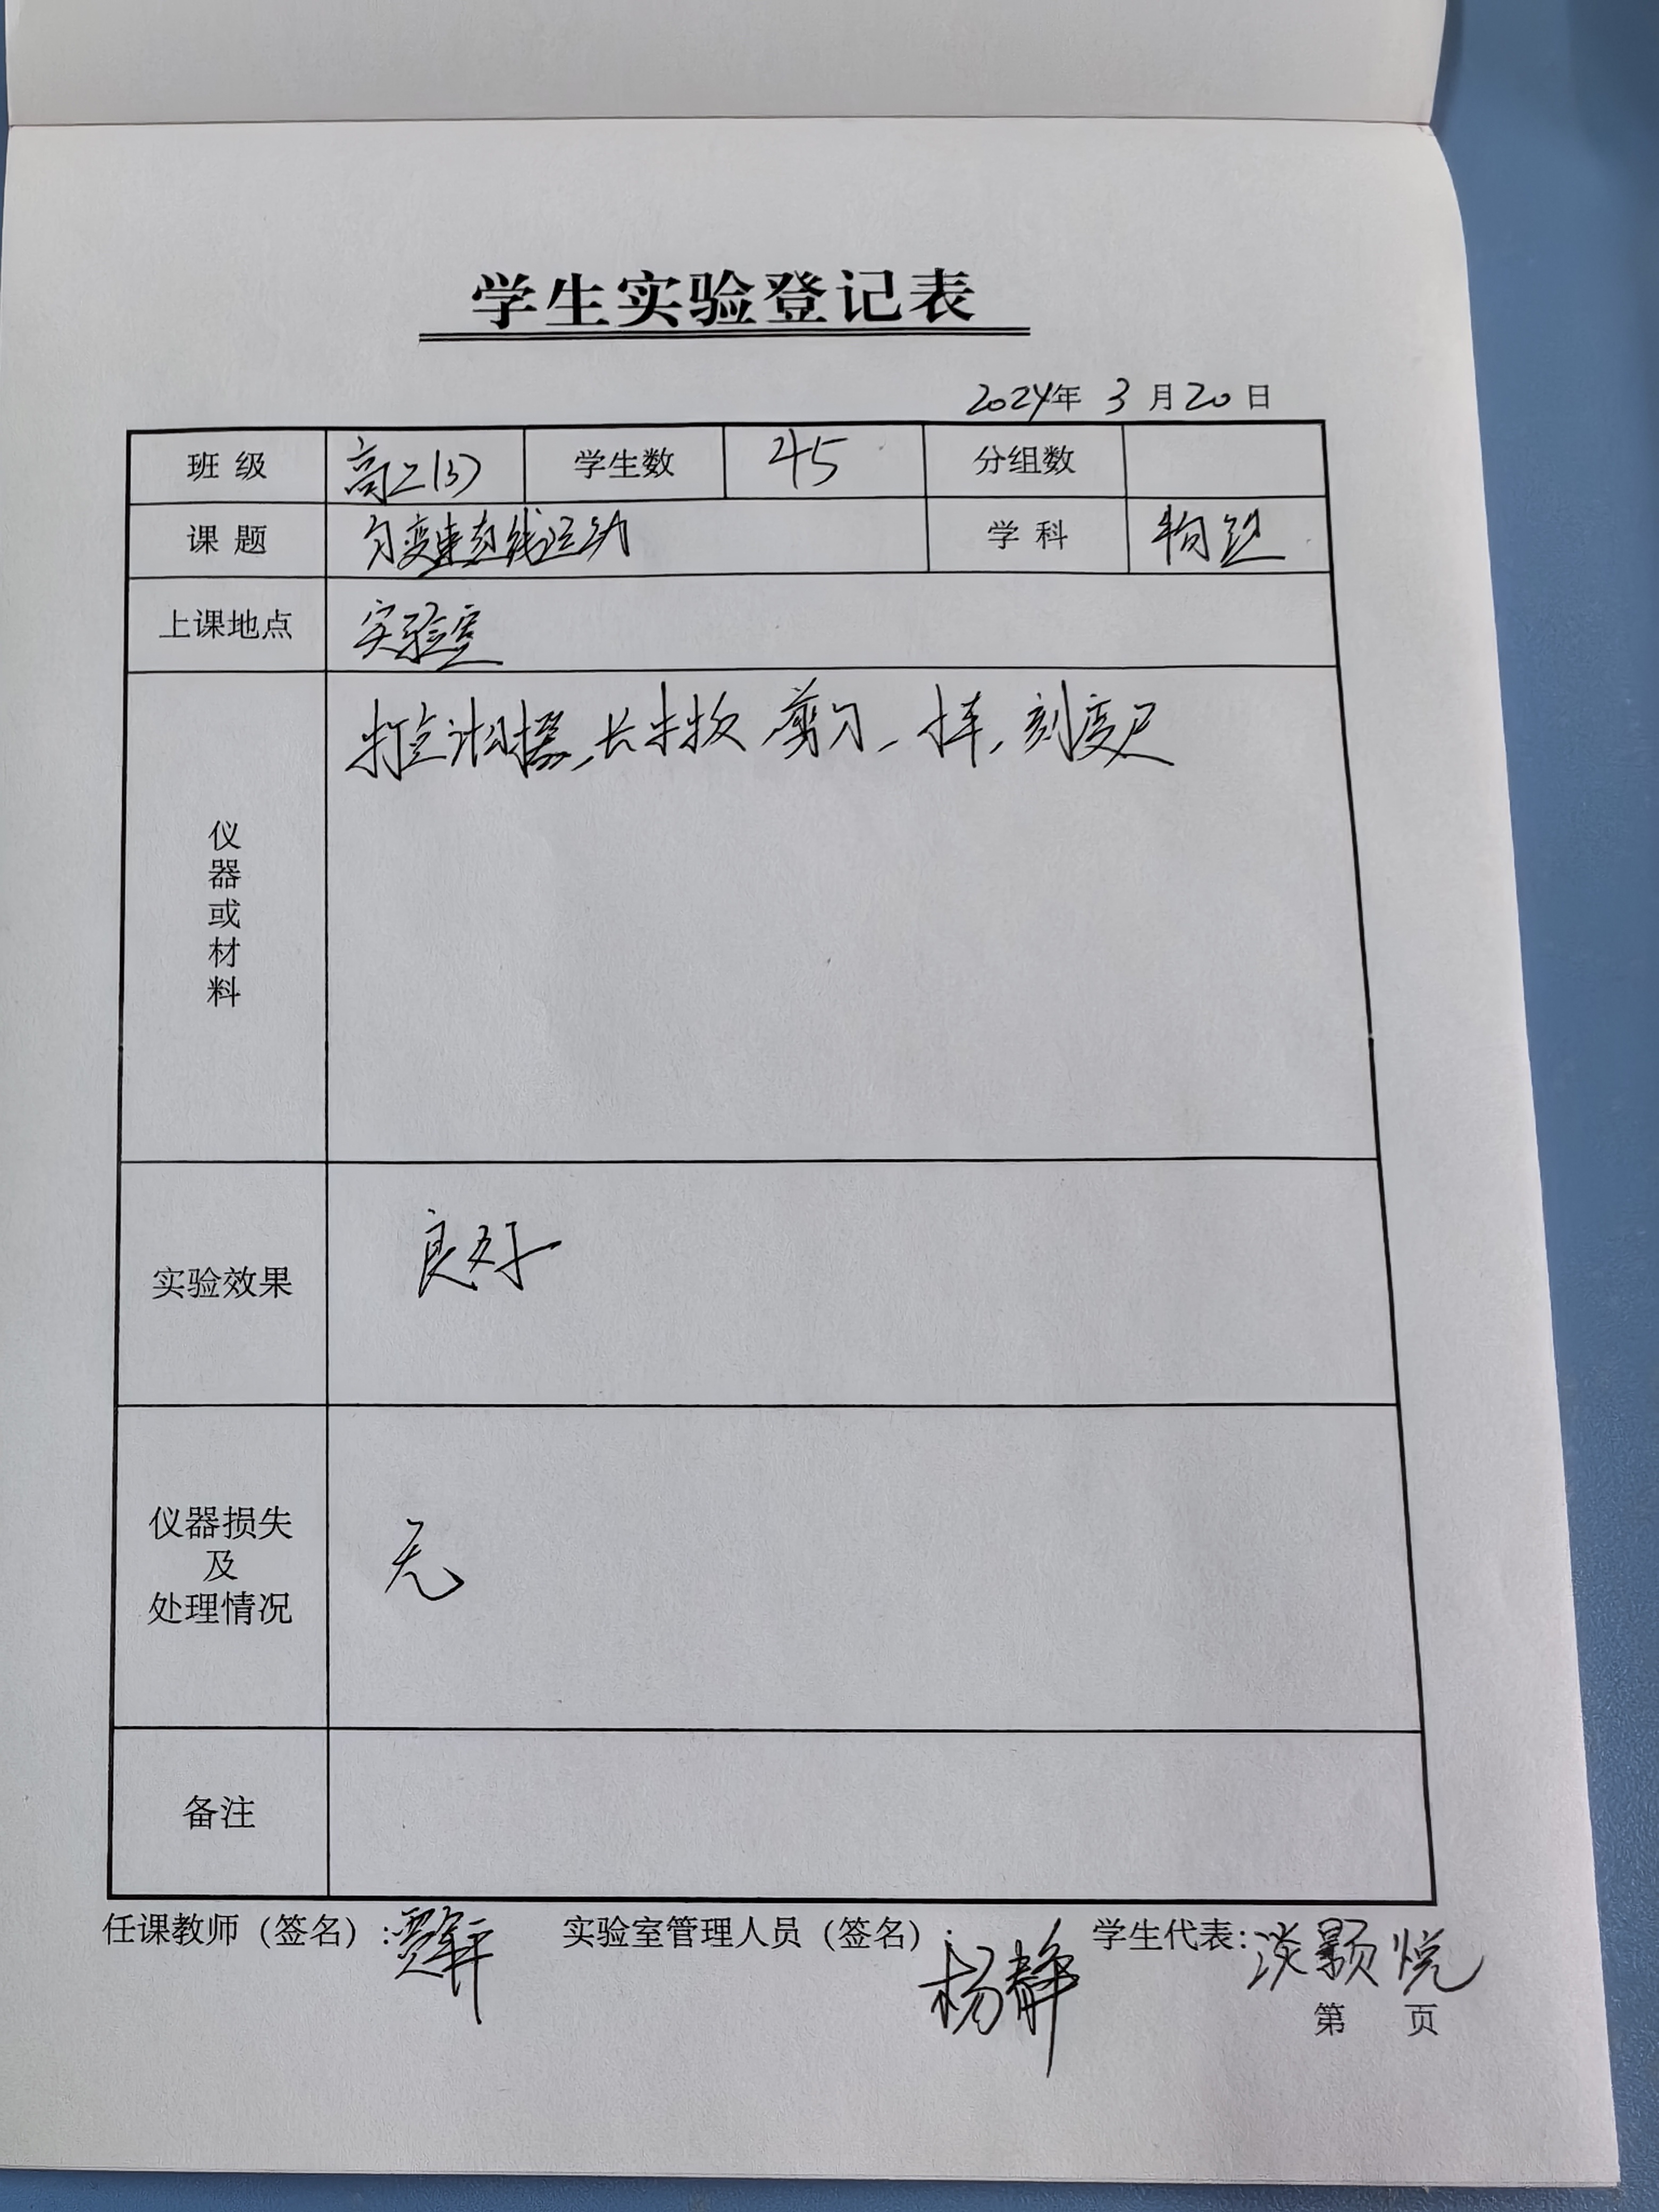 学生实验登记表
2024年 3 月 20 日
班 级 高二(3) 学生数 45 分组数
课 题 匀变速直线运动 学 科 物理
上课地点 实验室
仪器或材料 打点计时器、长木板、剪刀、小车、刻度尺
实验效果 良好
仪器损失
及
处理情况 无
备注
任课教师（签名）: 实验室管理人员（签名）: 杨静 学生代表: 淡颢悦
第 页